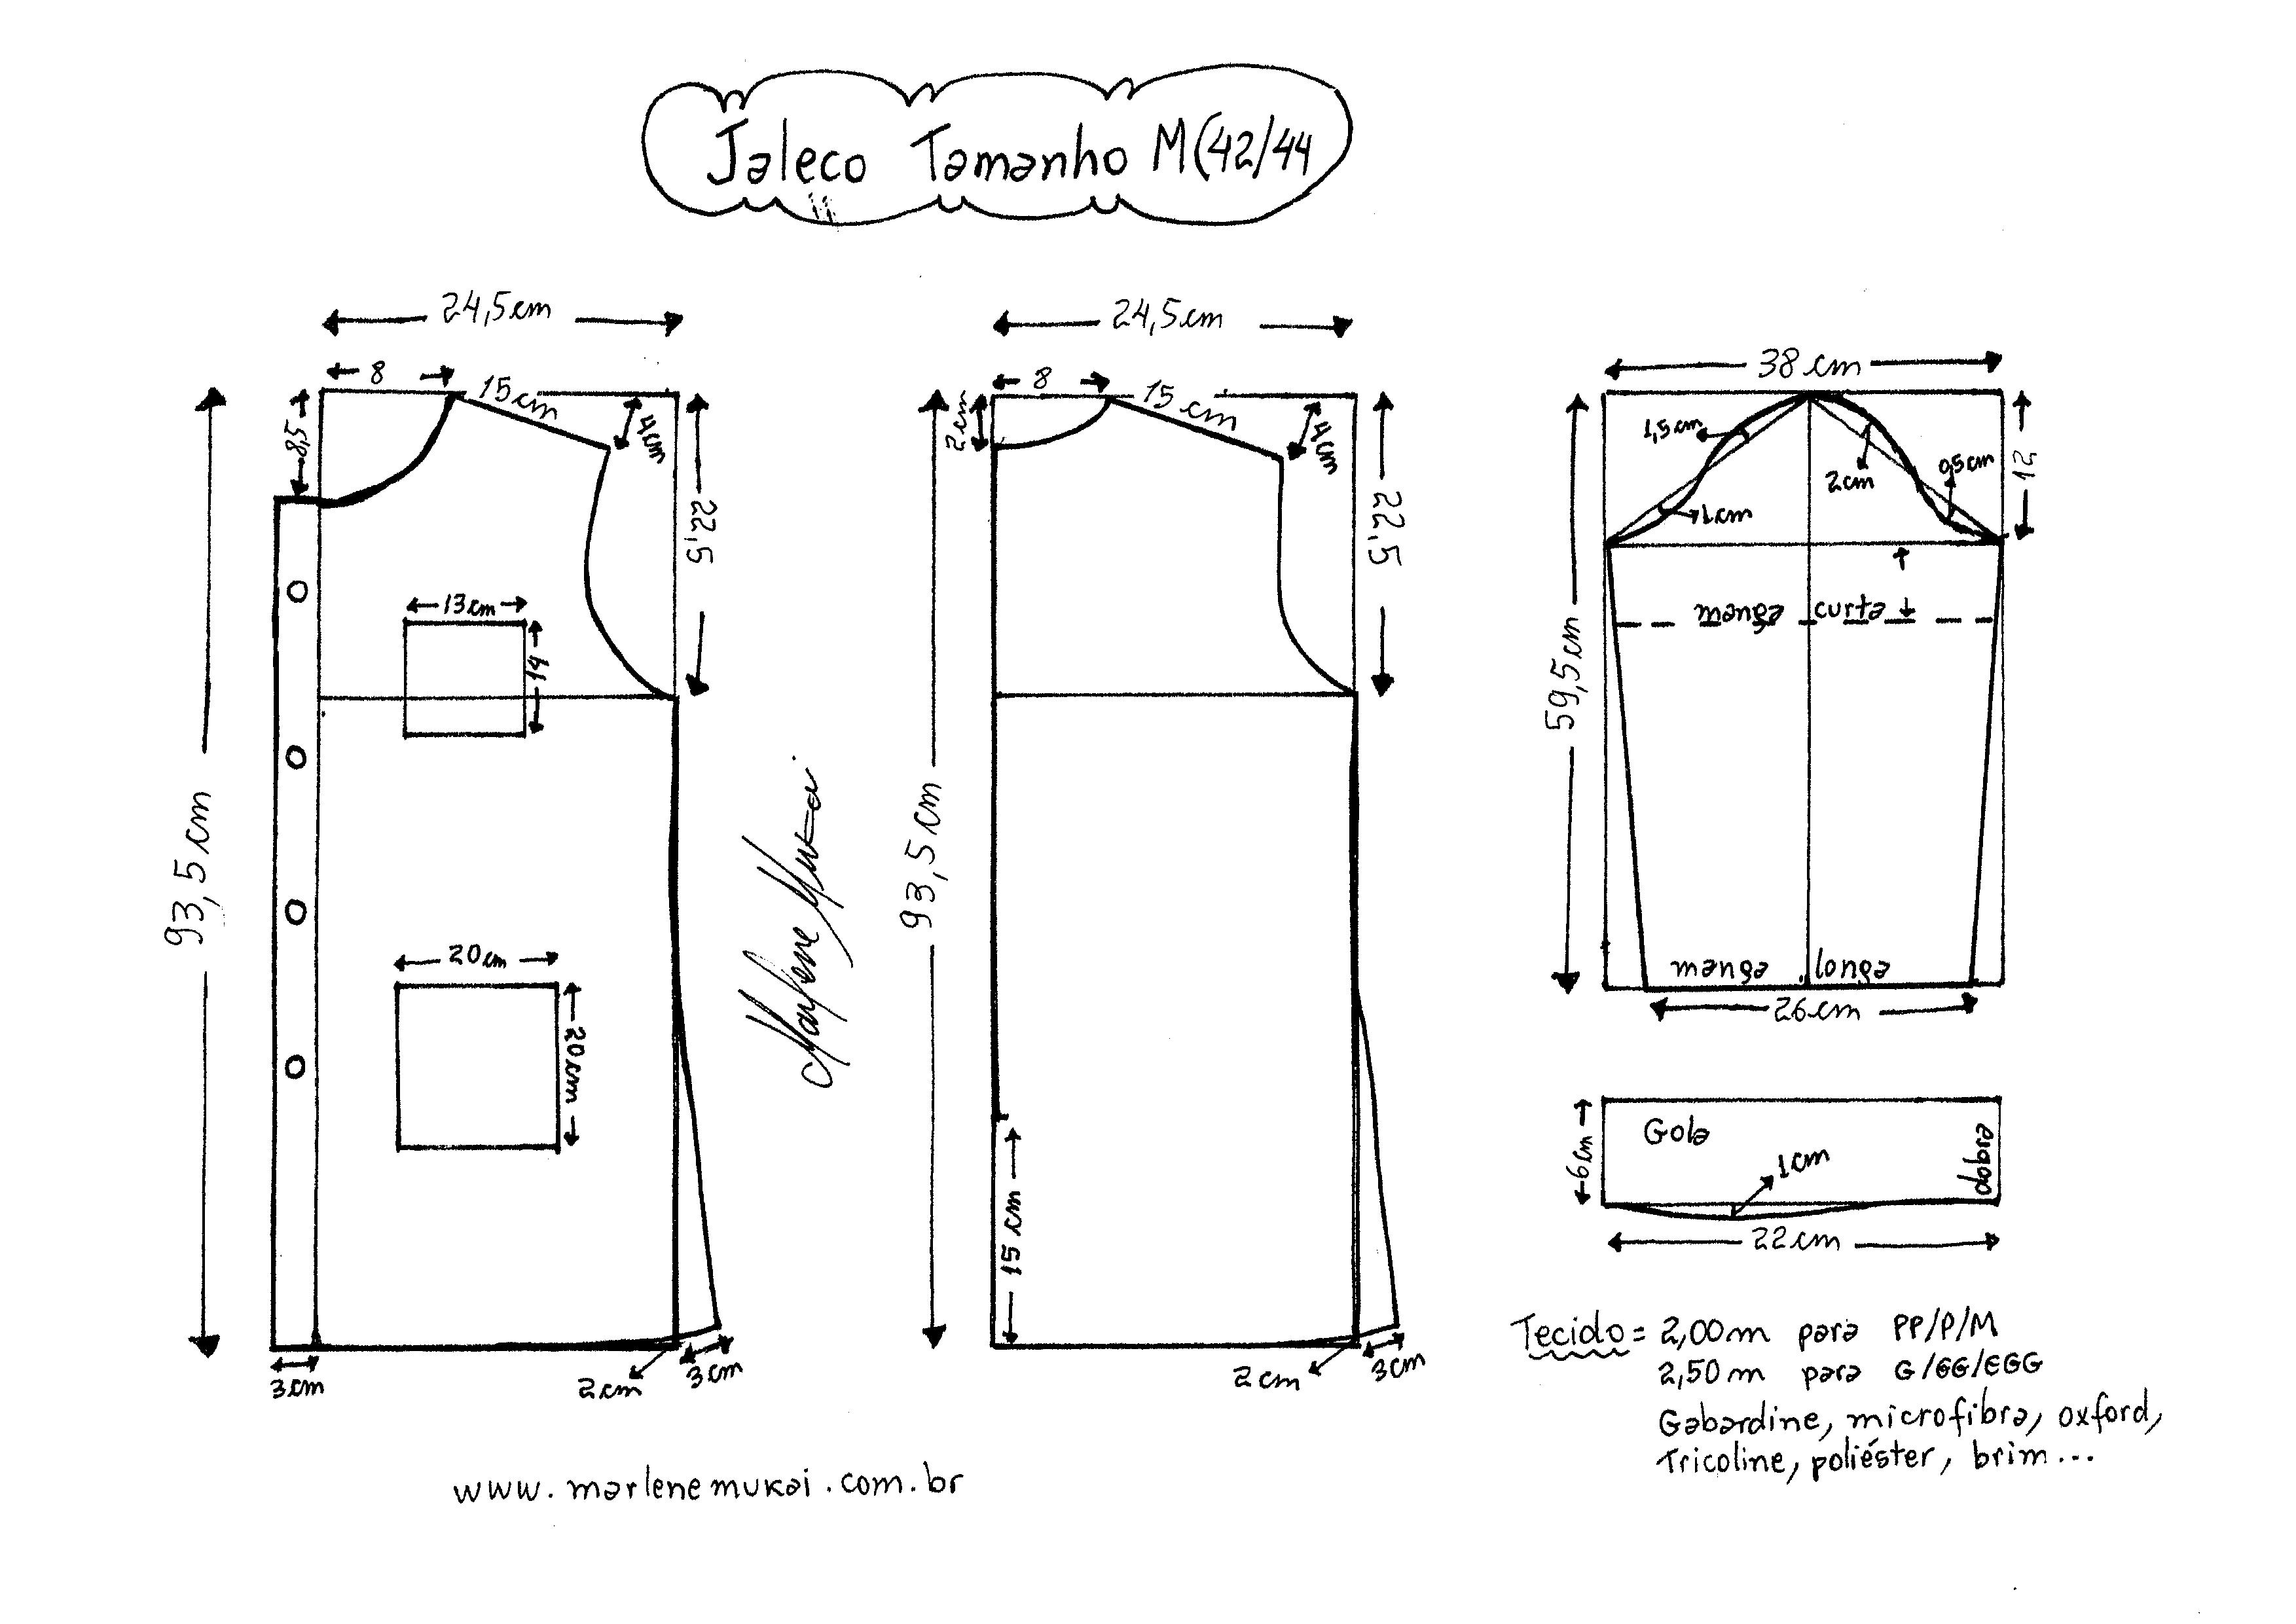 Jaleco Tamanho M(42/44
24,5cm
8
15cm
4cm
8,5
22,5
93,5cm
13cm
14
20cm
20cm
3cm
2cm
3cm
Marlene Mukai
24,5cm
8
15cm
4cm
2cm
22,5
93,5cm
15cm
2cm
3cm
38cm
1,5cm
2cm
0,5cm
1cm
12
manga curta
59,5cm
manga longa
26cm
Gola
6cm
1cm
dobra
22cm
Tecido = 2,00m para PP/P/M
2,50m para G/GG/EGG
Gabardine, microfibra, oxford,
Tricoline, poliéster, brim...
www.marlenemukai.com.br